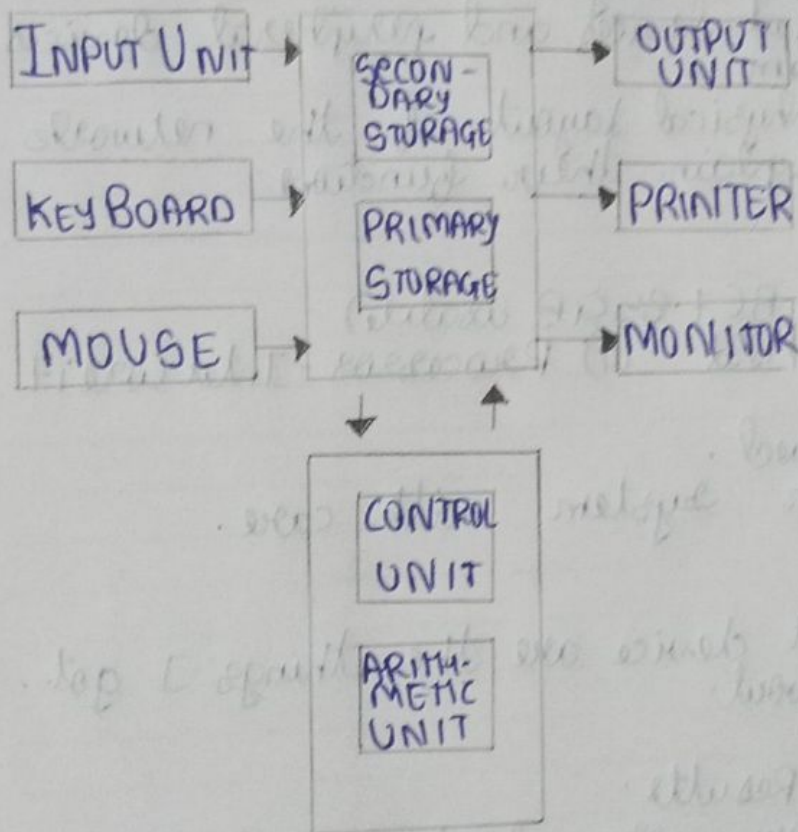 INPUT UNIT
KEYBOARD
MOUSE
SECON-
DARY
STORAGE
PRIMARY
STORAGE
OUTPUT
UNIT
PRINTER
MONITOR
CONTROL
UNIT
ARITH-
METIC
UNIT